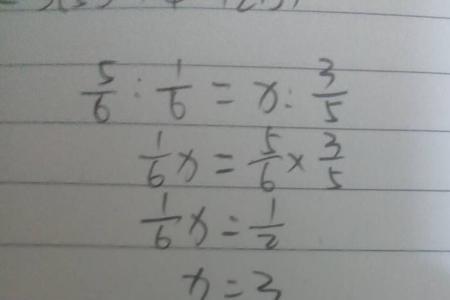 5/6 : 1/6 = x : 3/5
1/6 x = 5/6 × 3/5
1/6 x = 1/2
x = 3